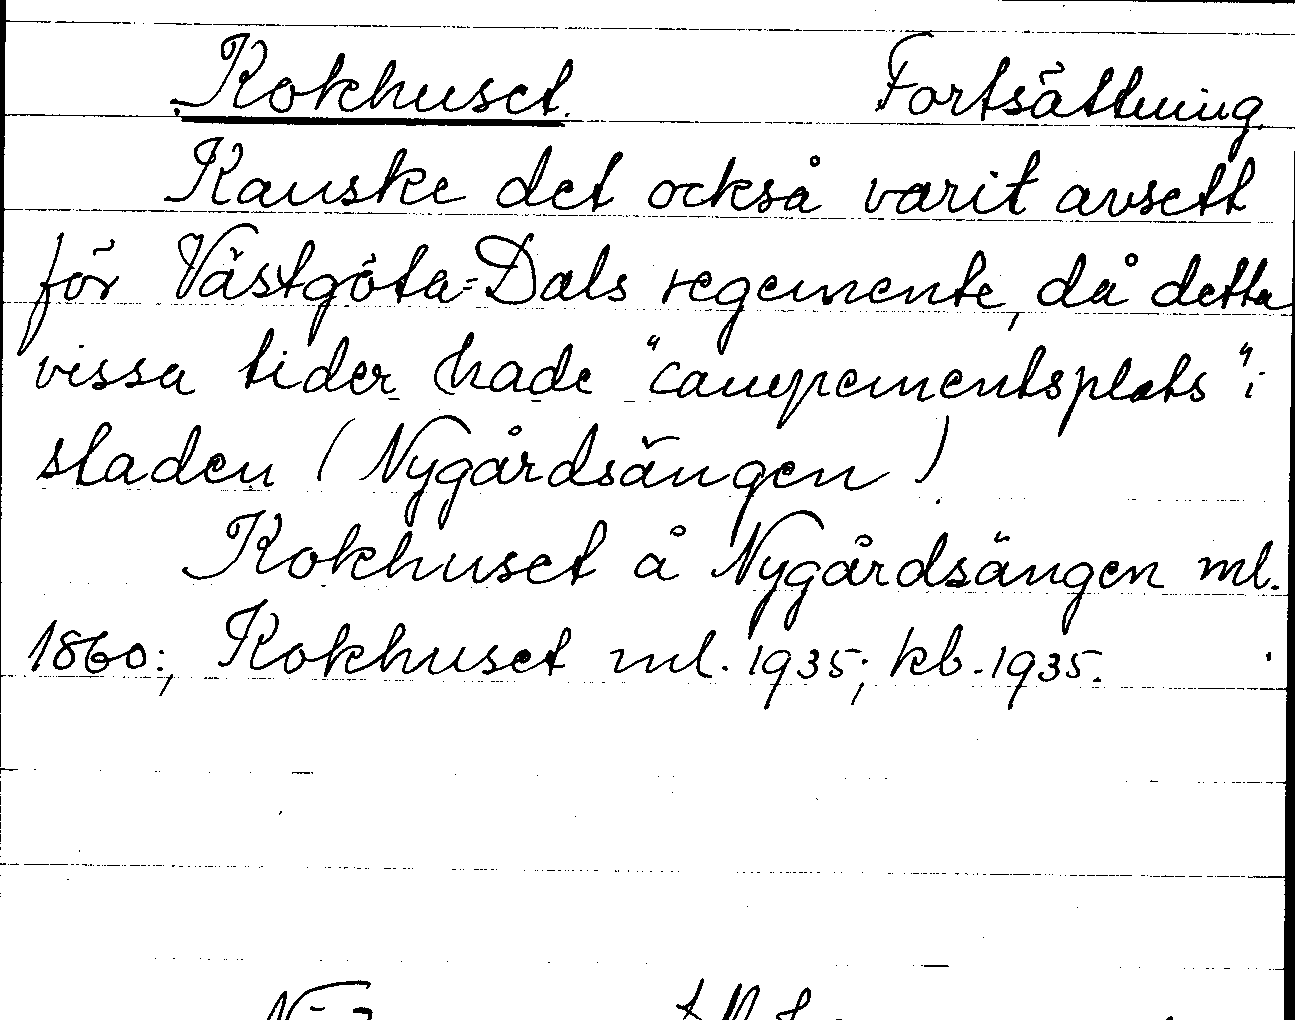 Kokhuset. Fortsättning.
Kanske det också varit avsett
för Västgöta=Dals regemente, då detta
vissa tider hade "campementsplats" i
staden (Nygårdsängen).
Kokhuset å Nygårdsängen ml.
1860:, Kokhuset ml. 1935; kb. 1935.